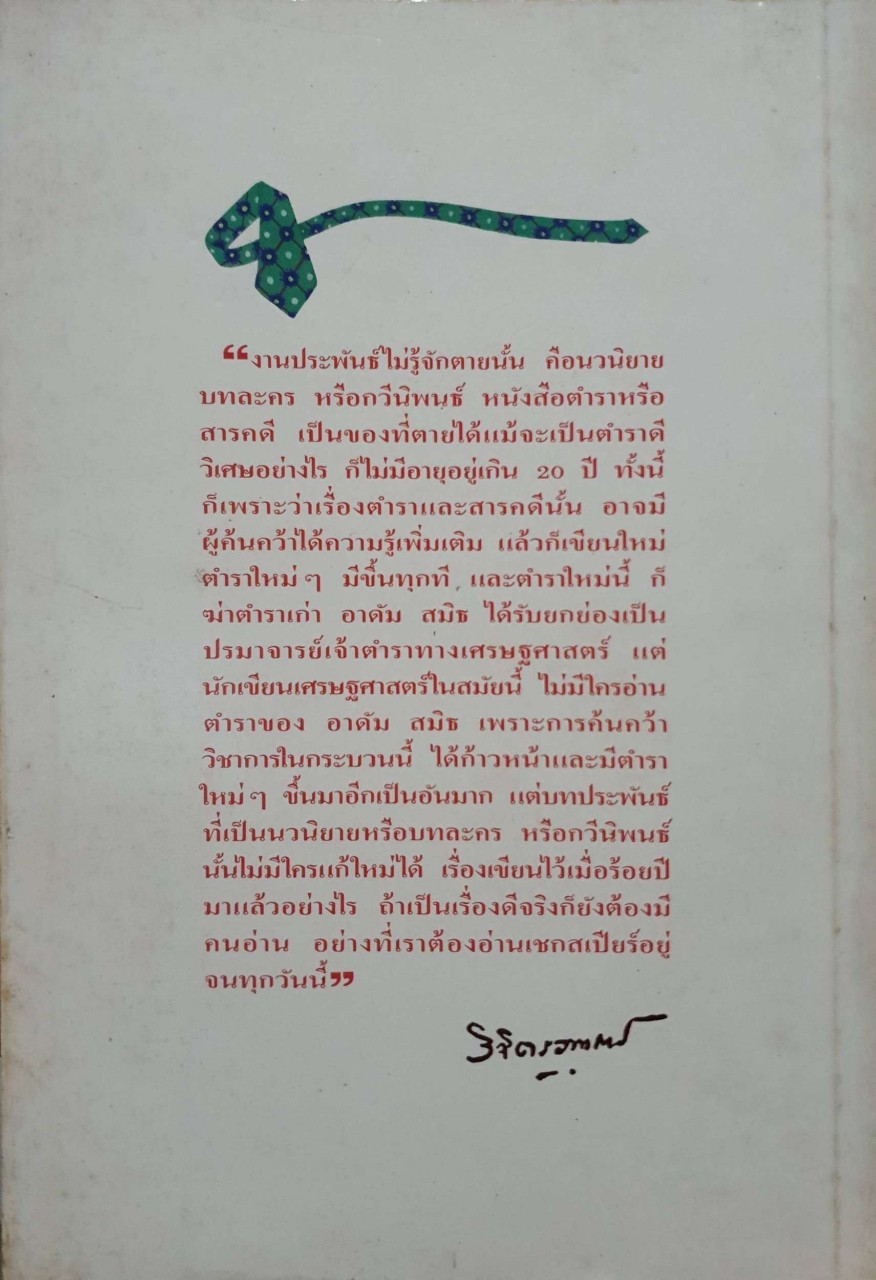 “งานประพันธ์ไม่รู้จักตายนั้น คือนวนิยาย
บทละคร หรือกวีนิพนธ์ หนังสือตำราหรือ
สารคดี เป็นของที่ตายได้แม้จะเป็นตำราดี
วิเศษอย่างไร ก็ไม่มีอายุอยู่เกิน 20 ปี ทั้งนี้
ก็เพราะว่าเรื่องตำราและสารคดีนั้น อาจมี
ผู้ค้นคว้าได้ความรู้เพิ่มเติม แล้วก็เขียนใหม่
ตำราใหม่ๆ มีขึ้นทุกที และตำราใหม่นี้ ก็
ฆ่าตำราเก่า อาดัม สมิธ ได้รับยกย่องเป็น
ปรมาจารย์เจ้าตำราทางเศรษฐศาสตร์ แต่
นักเขียนเศรษฐศาสตร์ในสมัยนี้ ไม่มีใครอ่าน
ตำราของ อาดัม สมิธ เพราะการค้นคว้า
วิชาการในกระบวนนี้ ได้ก้าวหน้าและมีตำรา
ใหม่ๆ ขึ้นมาอีกเป็นอันมาก แต่บทประพันธ์
ที่เป็นนวนิยายหรือบทละคร หรือกวีนิพนธ์
นั้นไม่มีใครแก้ใหม่ได้ เรื่องเขียนไว้เมื่อร้อยปี
มาแล้วอย่างไร ถ้าเป็นเรื่องดีจริงก็ยังต้องมี
คนอ่าน อย่างที่เราต้องอ่านเชกสเปียร์อยู่
จนทุกวันนี้”